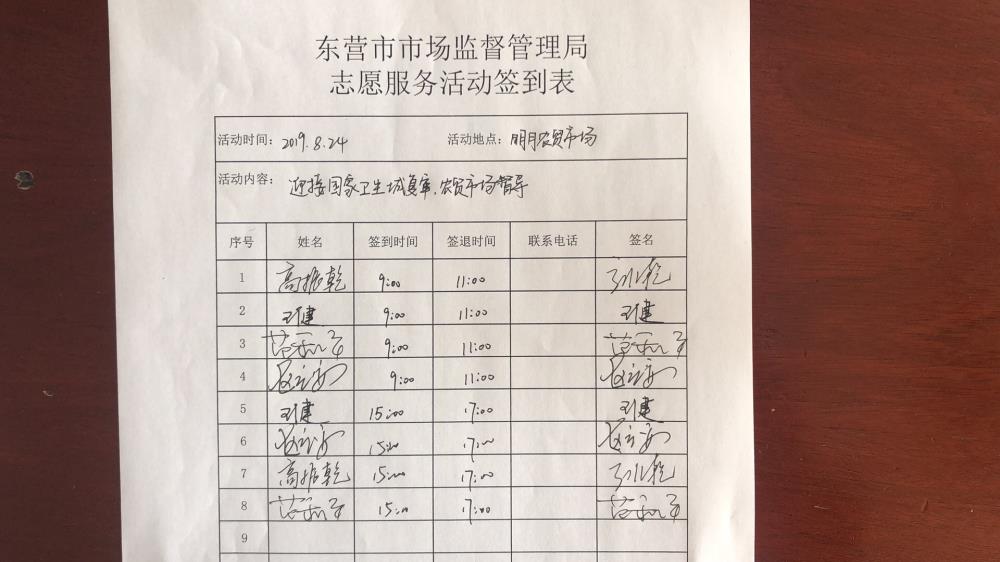 东营市市场监督管理局
志愿服务活动签到表
活动时间：2019.8.24 活动地点：明月农贸市场
活动内容：迎接国家卫生城复审、农贸市场督导
序号 姓名 签到时间 签退时间 联系电话 签名
1 高振乾 9:00 11:00
2 王建 9:00 11:00 王建
3 9:00 11:00
4 9:00 11:00
5 王建 15:00 17:00 王建
6 15:00 17:00
7 高振乾 15:00 17:00
8 15:00 17:00
9